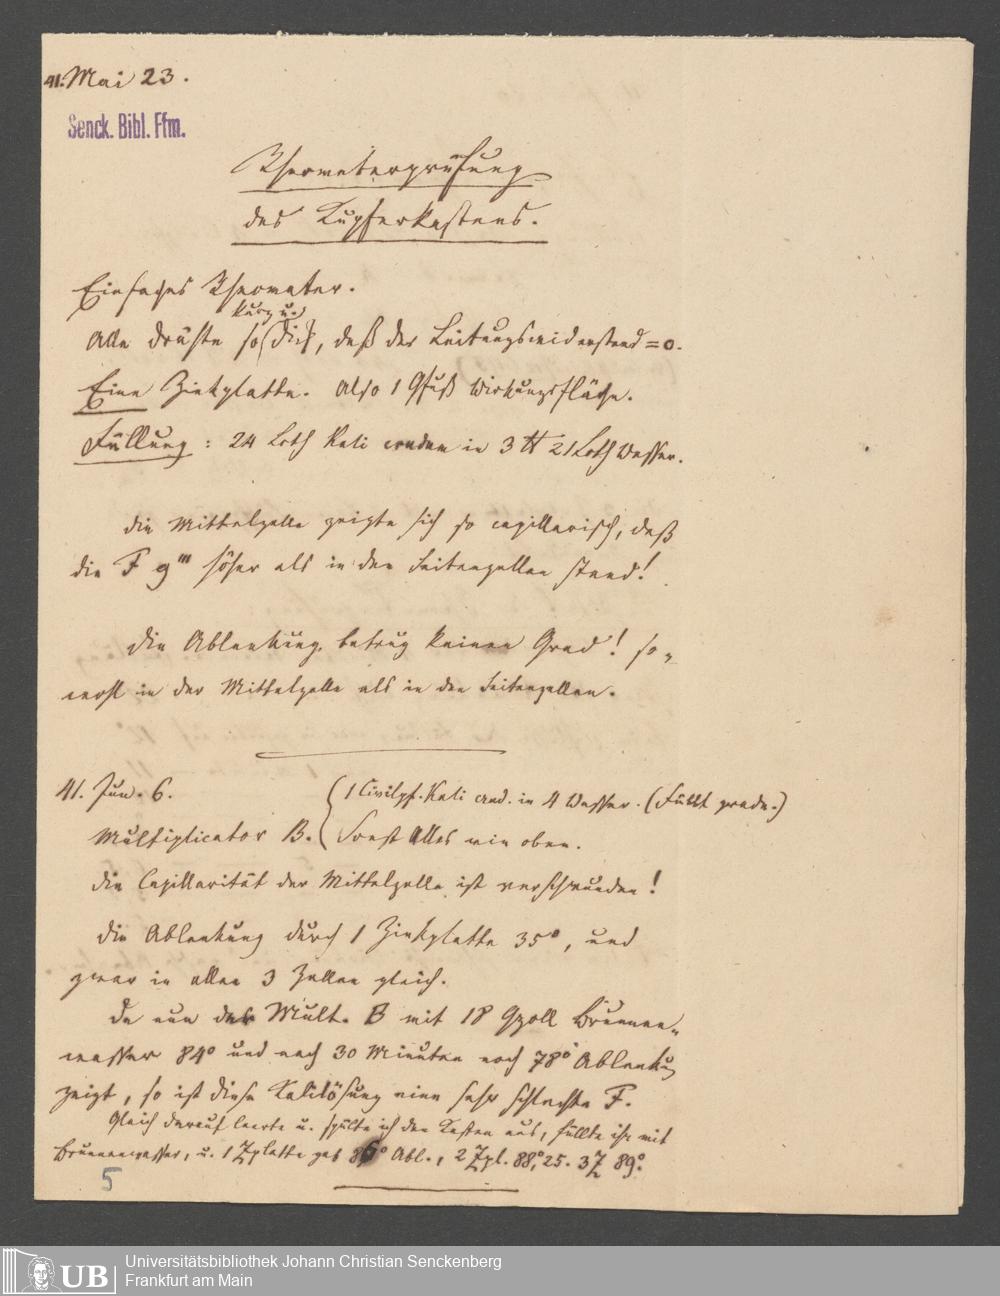 41. Mai 23.
Senck. Bibl. Ffm.
Rheometerprüfung
des Kupferkastens.
Einfaches Rheometer.
kurz u.
Alle Drähte so dick, daß der Leitungswiderstand = 0.
Eine Zinkplatte. Also 1 Qfuß Wirkungsfläche.
Füllung: 24 Loth Kali crudum in 3 ℔ 21 Loth Wasser.
Die Mittelzelle zeigte sich so capillarisch, daß
die F 9''' höher als in den Seitenzellen stand!
Die Ablenkung betrug keinen Grad! so-
wohl in der Mittelzelle als in den Seitenzellen.
41. Jun. 6.
{ 1 Civilpf. Kali crud. in 4 Wasser. (Füllt grade.)
Multiplicator B. { Sonst Alles wie oben.
Die Capillarität der Mittelzelle ist verschwunden!
Die Ablenkung durch 1 Zinkplatte 35°, und
zwar in allen 3 Zellen gleich.
Da nun der Mult. B mit 18 Qzoll Brunnen-
wasser 84° und nach 30 Minuten noch 78° Ablenkung
zeigt, so ist diese Kalilösung eine sehr schlechte F.
Gleich darauf leerte u. spülte ich den Kasten aus, füllte ihn mit
Brunnenwasser, u. 1 Zplatte gab 86° Abl., 2 Zpl. 88°,25. 3 Z 89°.
5
Universitätsbibliothek Johann Christian Senckenberg
UB Frankfurt am Main